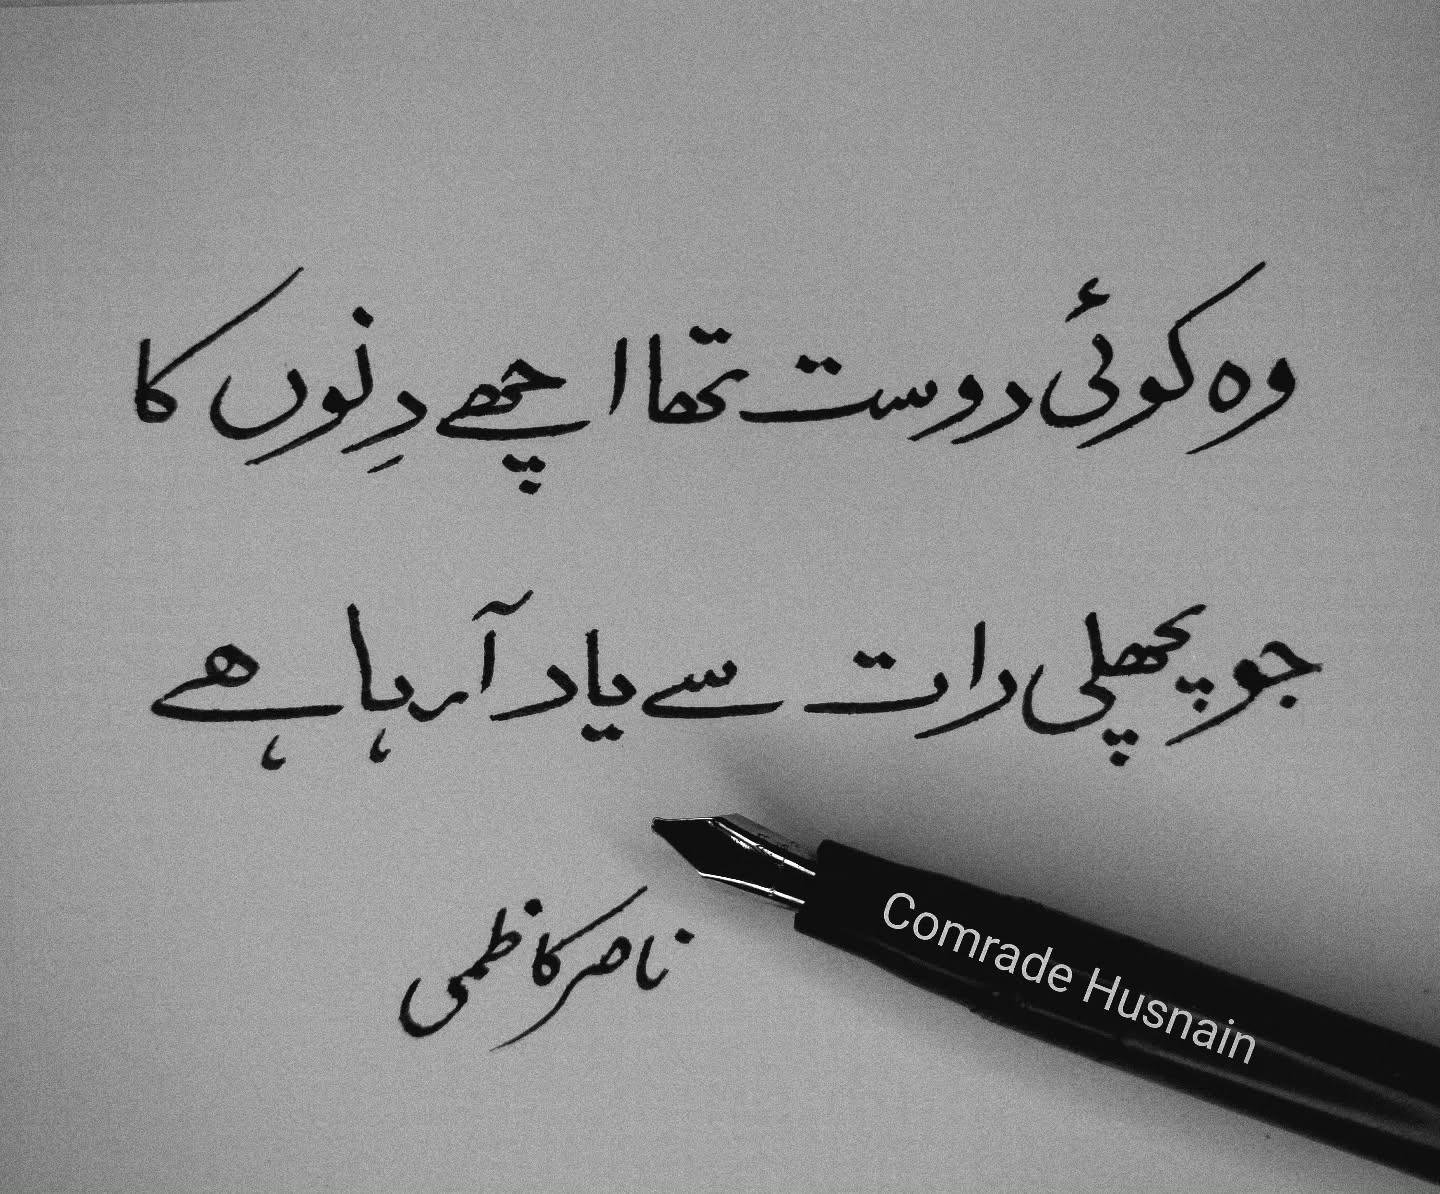 وہ کوئی دوست تھا اچھے دِنوں کا
جو پچھلی رات سے یاد آ رہا ہے
ناصر کاظمی
Comrade Husnain